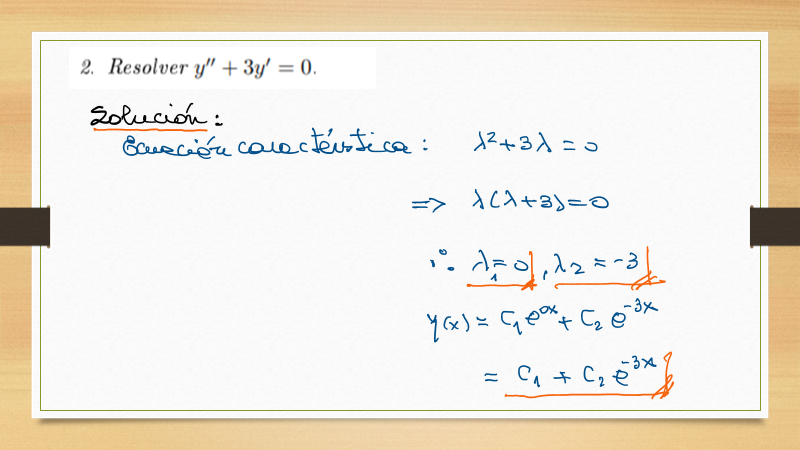 2. Resolver y″ + 3y′ = 0.
Solución:
Ecuación característica: λ²+3λ = 0
=> λ(λ+3)=0
∴ λ₁=0, λ₂ = -3
y(x) = C₁e⁰ˣ + C₂e⁻³ˣ
= C₁ + C₂e⁻³ˣ